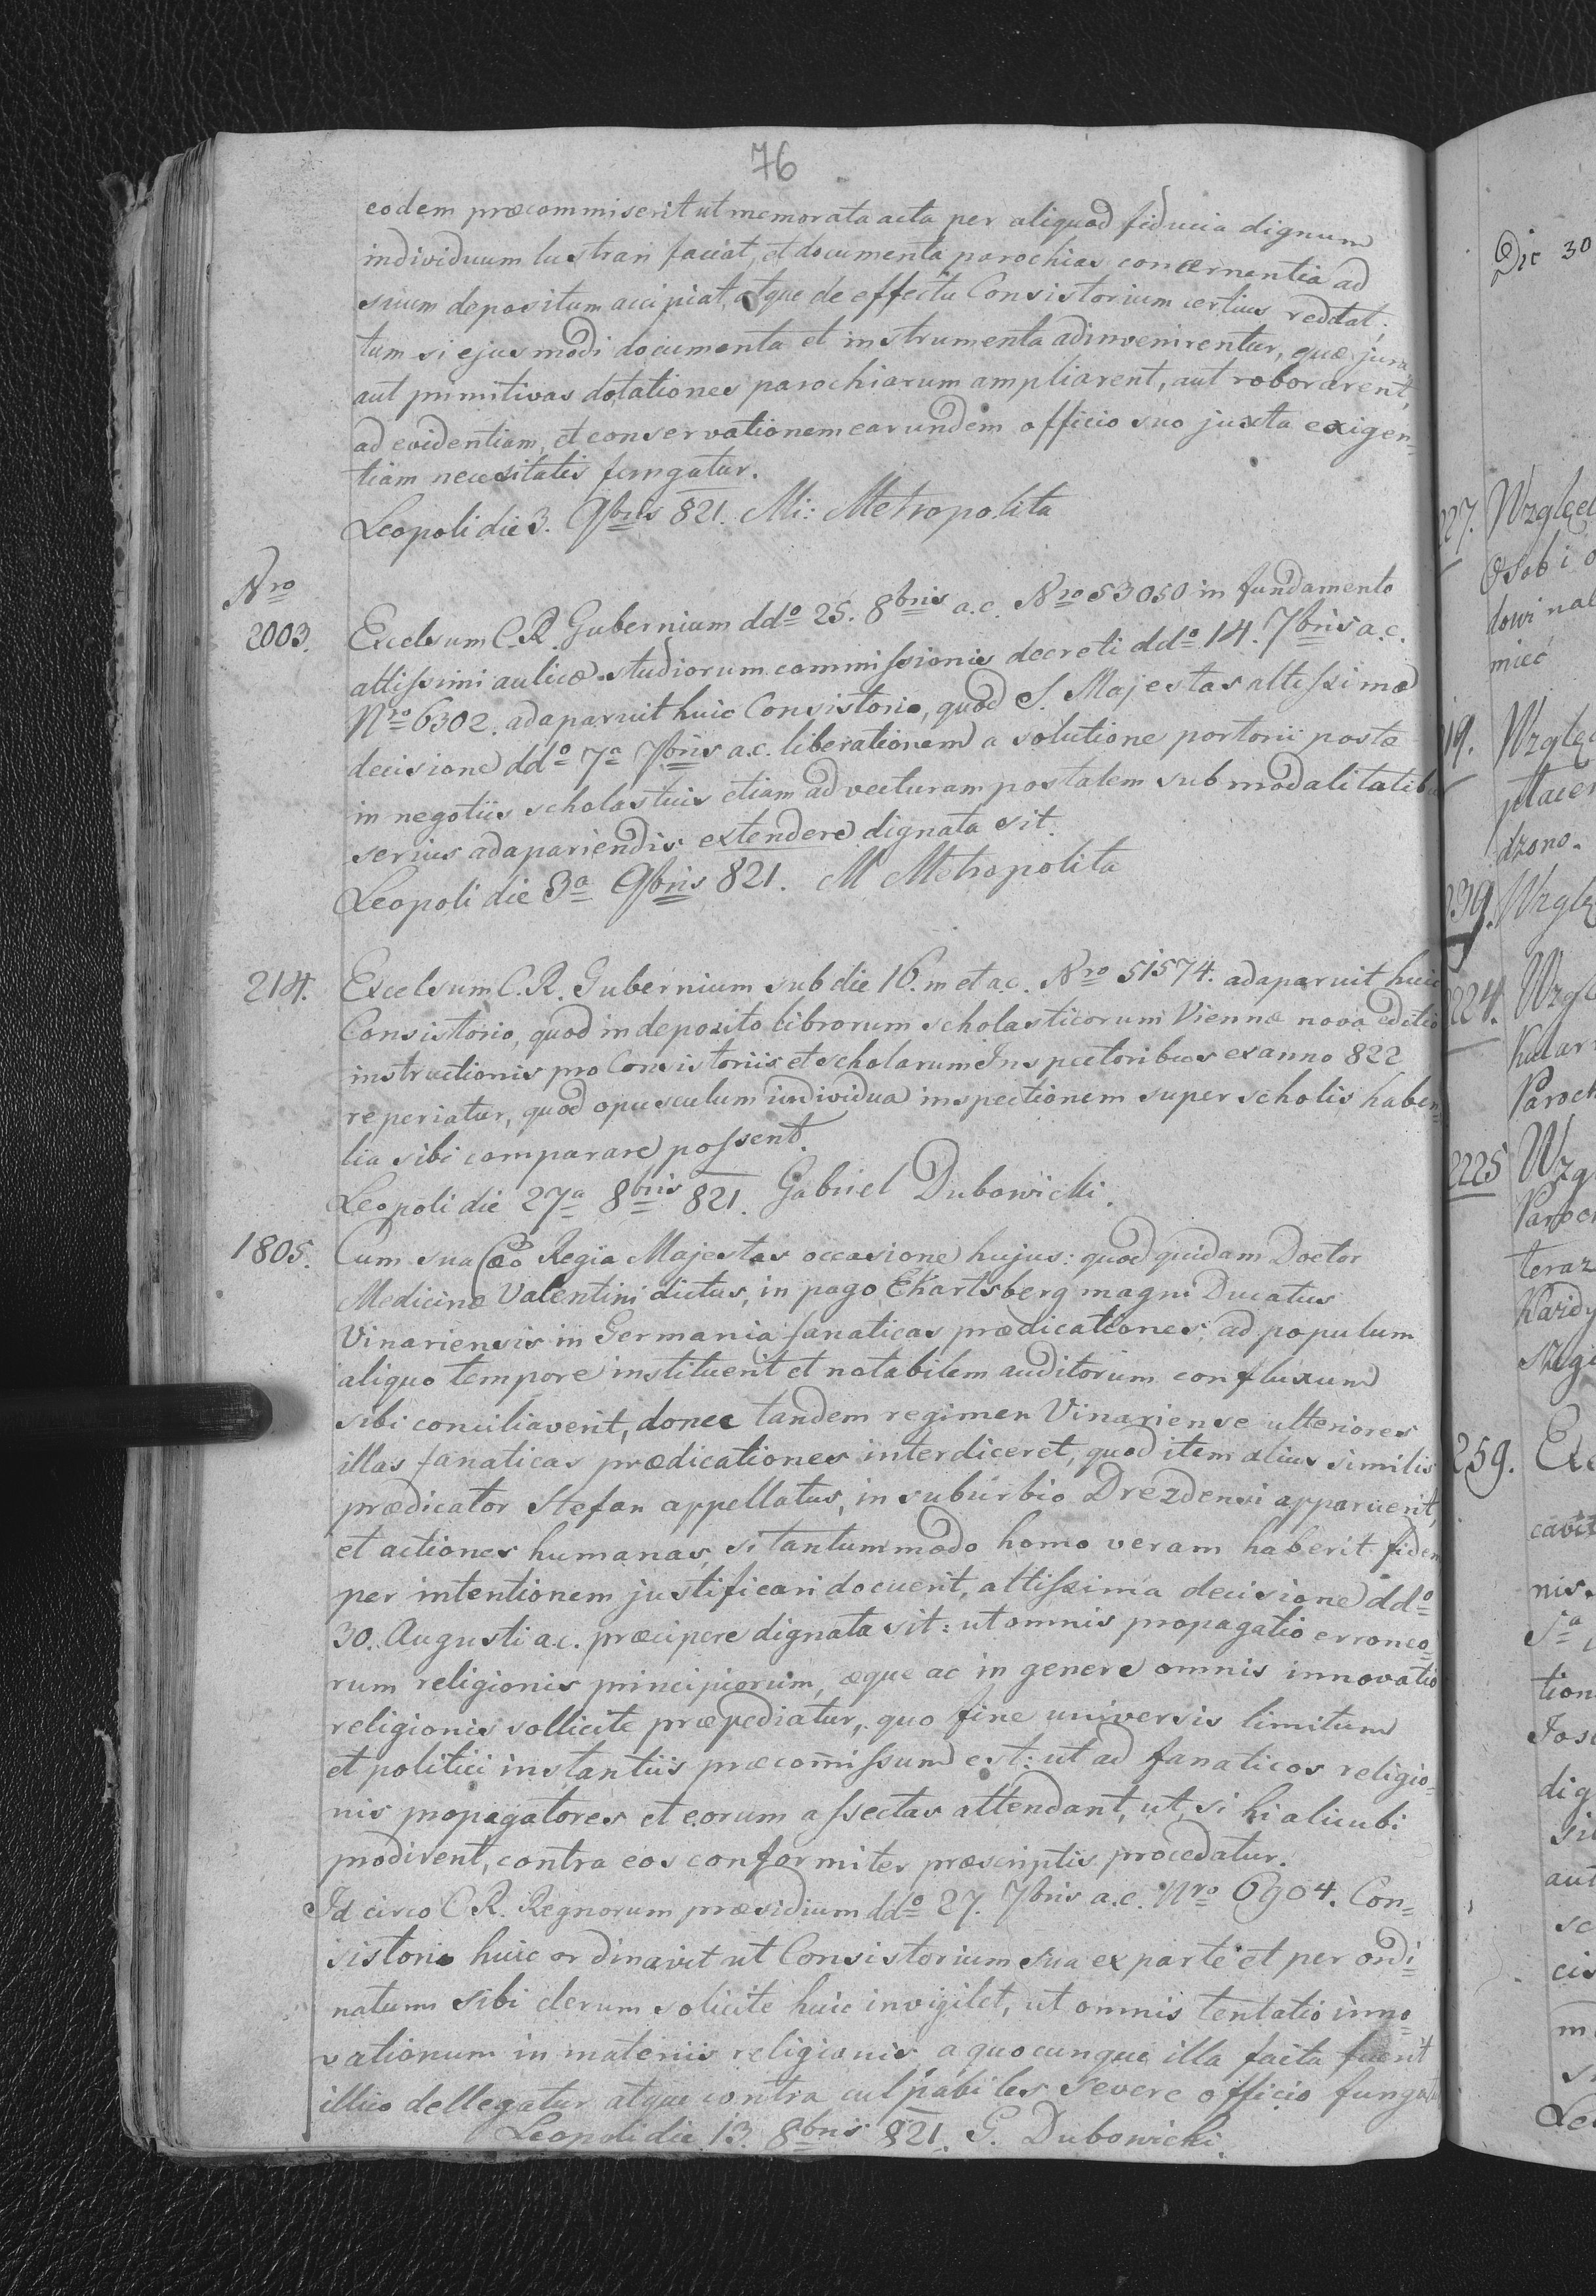 76
eodem præcommiserit ut memorata acta per aliquod fiducia dignum
individuum lustrari faciat, et documenta parochias concernentia ad
suum depositum accipiat, atque de effectu Consistorium certius reddat;
tum si ejusmodi documenta et instrumenta adinvenirentur, quæ jura
aut primitivas dotationes parochiarum ampliarent, aut roborarent,
ad evidentiam, et conservationem earundem officio suo juxta exigen=
tiam necessitatis fungatur.
Leopoli die 3. 9bris 821. Mi: Metropolita
Nro
2003. Excelsum C.R. Gubernium ddo 25. 8bris a.c. Nro 53050 in fundamento
altissimi aulicæ studiorum commissionis decreti ddo 14. 7bris a.c.
Nro 6302. adaparuit huic Consistorio, quod S. Majestas altissima
decisione ddo 7a 7bris a.c. liberationem a solutione portorii postæ
in negotiis scholasticis etiam ad vecturam postalem sub modalitatibus
serius adapariendis extendere dignata sit.
Leopoli die 3a 9bris 821. M Metropolita
214. Excelsum C.R. Gubernium sub die 16. m et a.c. Nro 51574. adaparuit huic
Consistorio, quod in deposito librorum scholasticorum Viennæ nova editio
instructionis pro Consistoriis et scholarum Inspectoribus ex anno 822
reperiatur, quod opusculum individua inspectionem super scholis haben=
tia sibi comparare possent.
Leopoli die 27a 8bris 821. Gabriel Dubowicki.
1805. Cum sua Cæo Regia Majestas occasione hujus: quod quidam Doctor
Medicinæ Valentini dictus, in pago Ekartsberg magni Ducatus
Vinariensis in Germania fanaticas prædicationes ad populum
aliquo tempore instituerit et notabilem auditorum confluxum
sibi conciliaverit, donec tandem regimen Vinariense ulteriores
illas fanaticas prædicationes interdiceret, quod item alius similis
prædicator Stefan appellatus, in suburbio Drezdensi apparuerit,
et actiones humanas, si tantummodo homo veram haberit fidem
per intentionem justificari docuerit, altissima decisione ddo
30. Augusti a.c. præcipere dignata sit: ut omnis propagatio erroneo=
rum religionis principiorum, æque ac in genere omnis innovatio
religionis sollicite præpediatur, quo fine universis limitum
et politici instantiis præcom̄issum est: ut ad fanaticos religio=
nis propagatores et eorum assectas attendant, ut, si hi alicubi
prodirent, contra eos conformiter præscriptis procedatur.
Id circo C.R. Regnorum præsidium ddo 27. 7bris a.c. Nro 6904. Con=
sistorio huic ordinavit ut Consistorium sua ex parte et per ordi=
natum sibi clerum solicite huic invigilet, ut omnis tentatio inno=
vationum in materiis religionis, a quocunque illa facta fuerit
illico dellegatur atque contra culpabiles severe officio fungatur
Leopoli die 13. 8bris 821. G. Dubowicki.
Die 30
27. Względ
Osob i o
dowi nal
mieć
19. Wzglę
dzono.
239. Wzglę
224. Wzgl
Paroch
2225 Wzg
Paroch
teraz
259. Exc
cavit
nis.
tion
Jose
dig
aut
sc
cis
Le